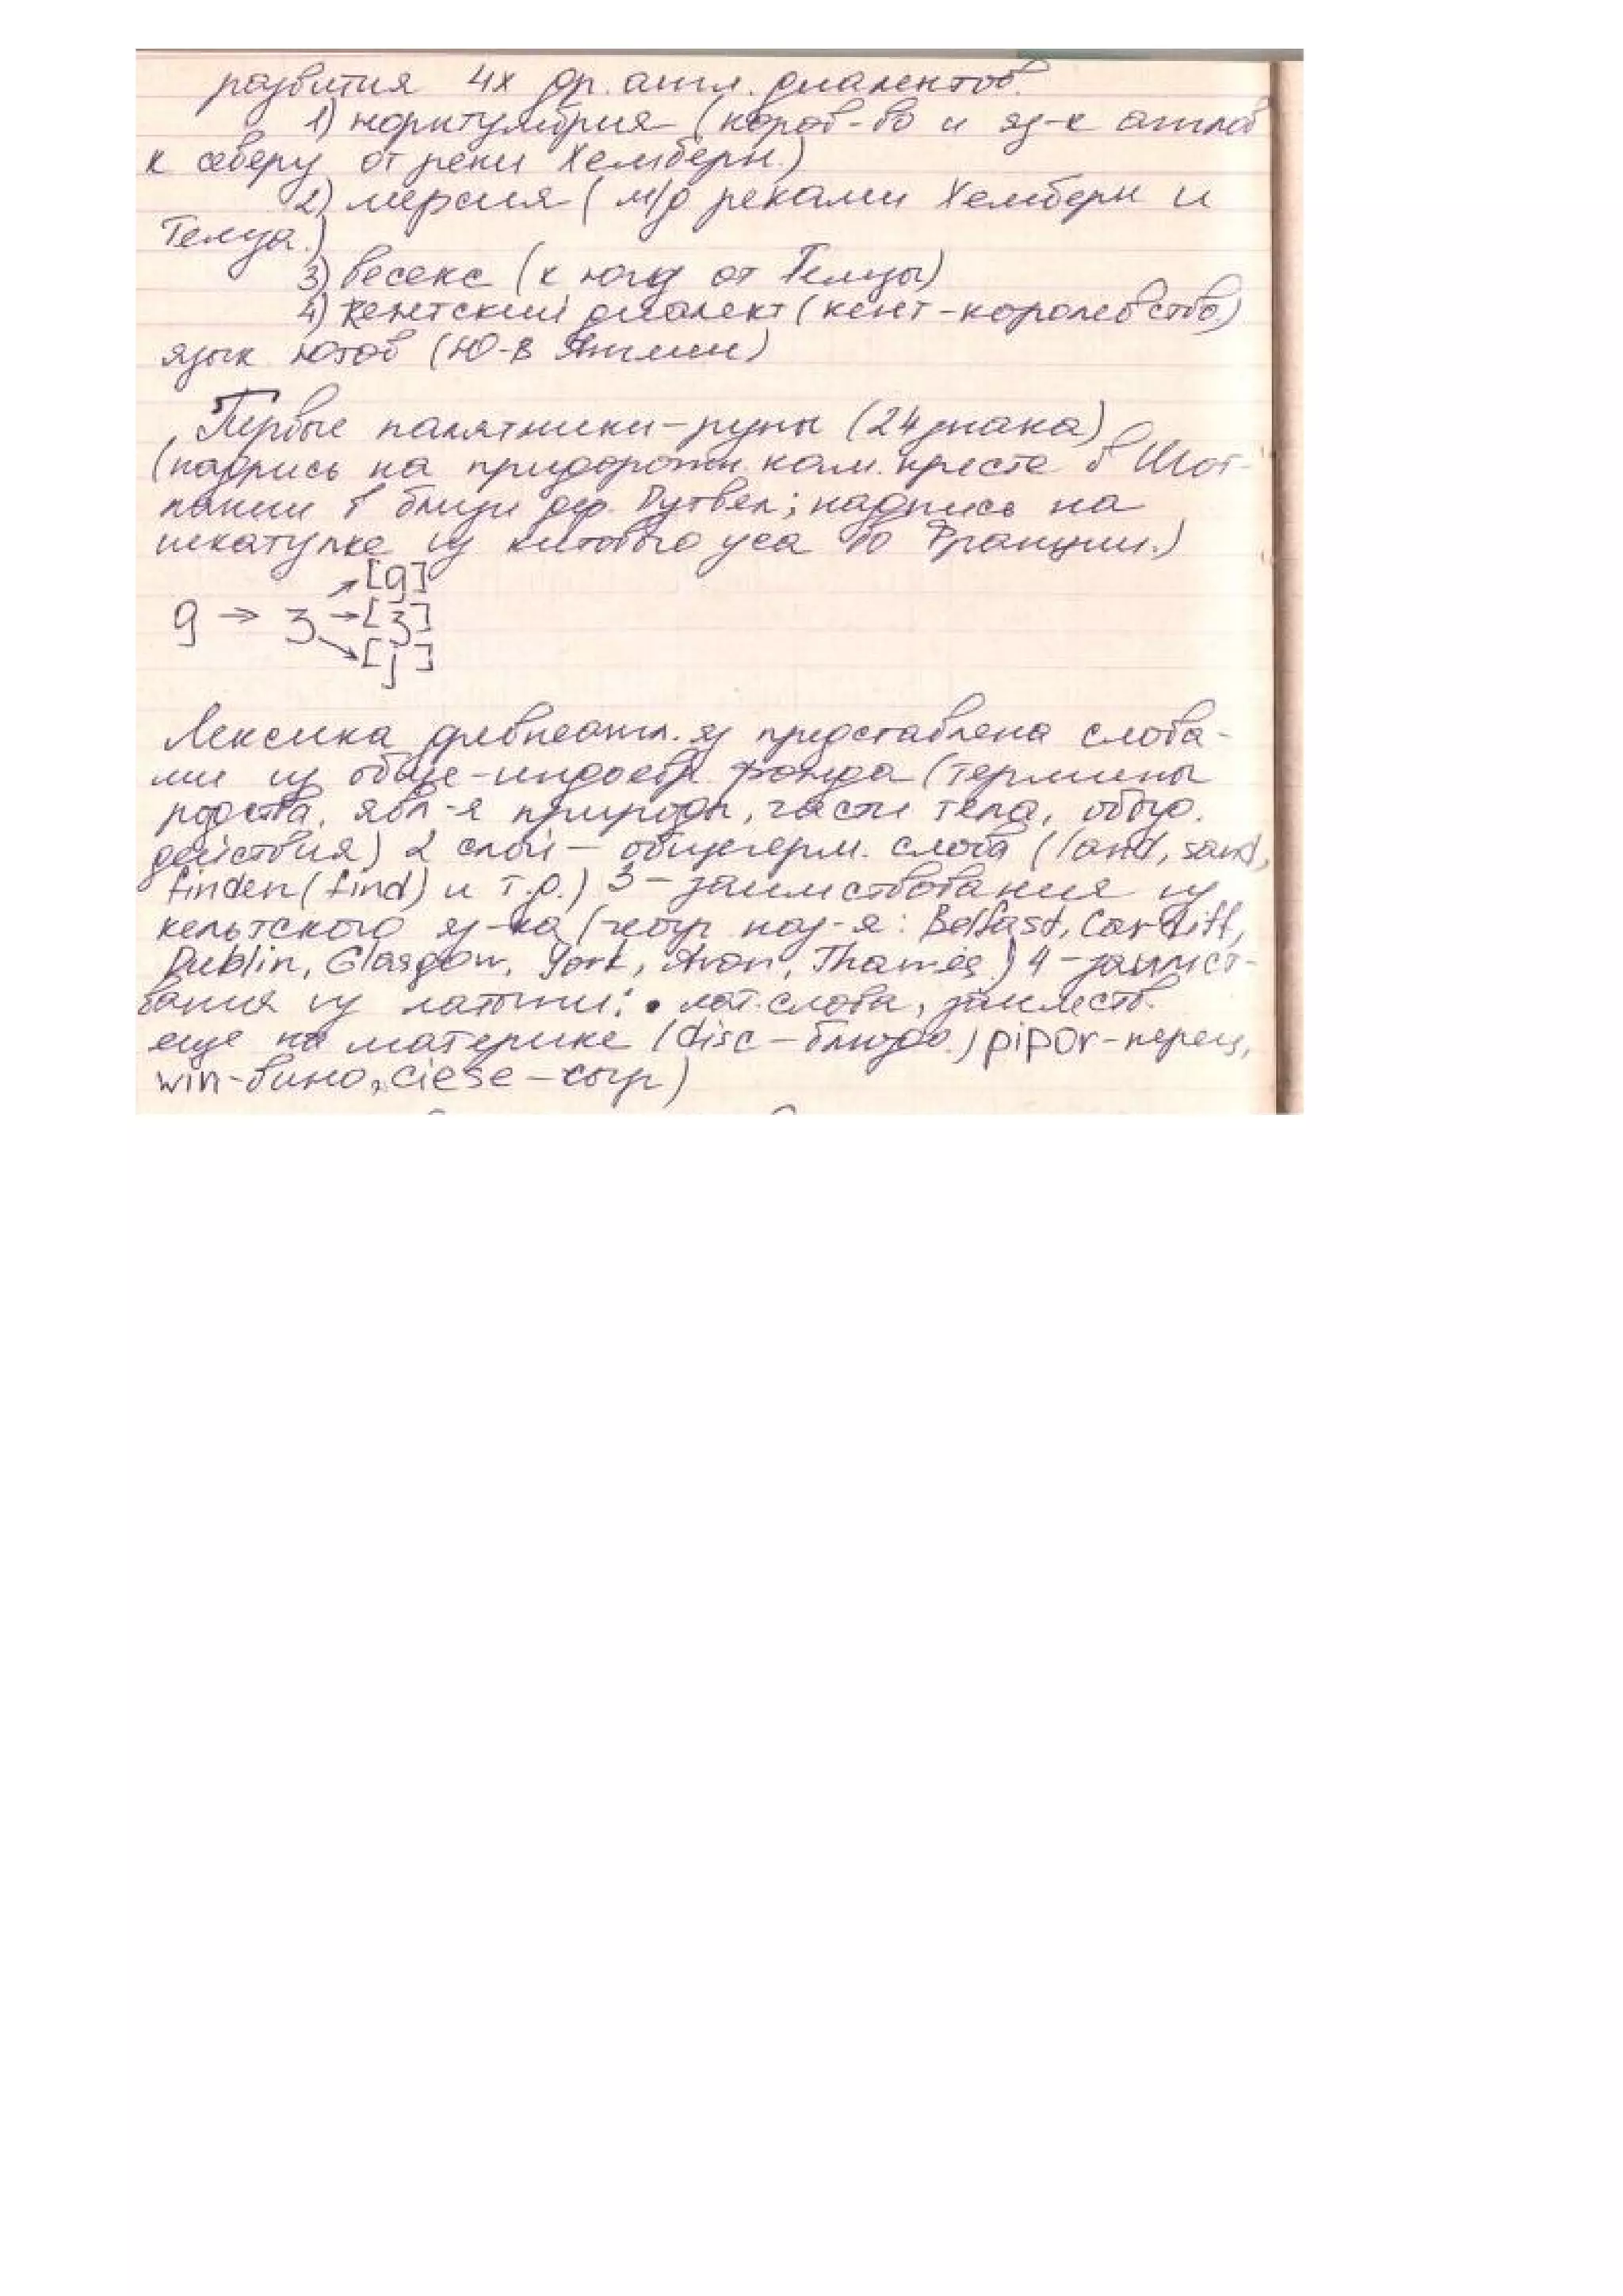 развития 4х др. англ. диалектов.
1) нортумбрия (корол-во и яз-к англов
к северу от реки Хемберн.)
2) мерсия (м/д реками Хемберн и
Темза.)
3) весекс (к югу от Темзы)
4) кентский диалект (кент - королевство)
язык ютов (Ю-В Англии)
Первые памятники - руны (24 знака)
(надпись на придорожн. кам. кресте в Шот-
ландии в близи дер. Рутвел; надпись на
шкатулке из китового уса во Франции.)
→ [g]
g → ʒ → [ʒ]
→ [j]
Лексика древнеангл. яз представлена слова-
ми из обще-индоевр. фонда (термины
родства, явл-я природы, части тела, обыд.
действия) 2 слой - общегерм. слова (land, sand,
finden (find) и т.д.) 3 - заимствования из
кельтского яз-ка (геогр наз-я: Belfast, Cardiff,
Dublin, Glasgow, York, Avon, Thames) 4 - заимст-
вания из латыни: • лат. слова, заимств.
еще на материке (disc - блюдо) pipor - перец,
win - вино, ciese - сыр)